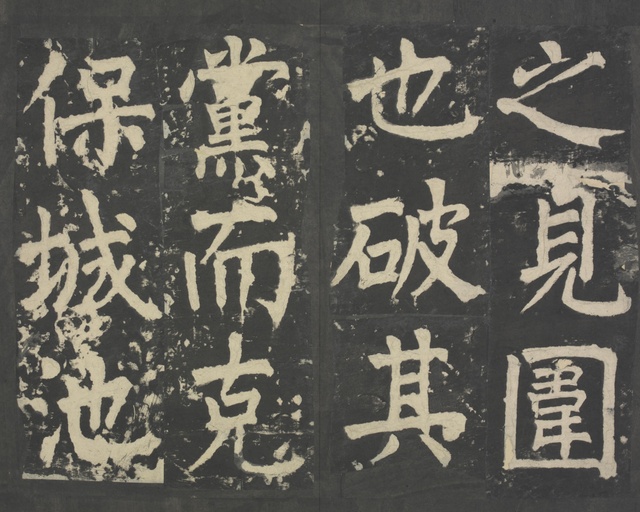 之見圍
也破其
黨而克
保城池